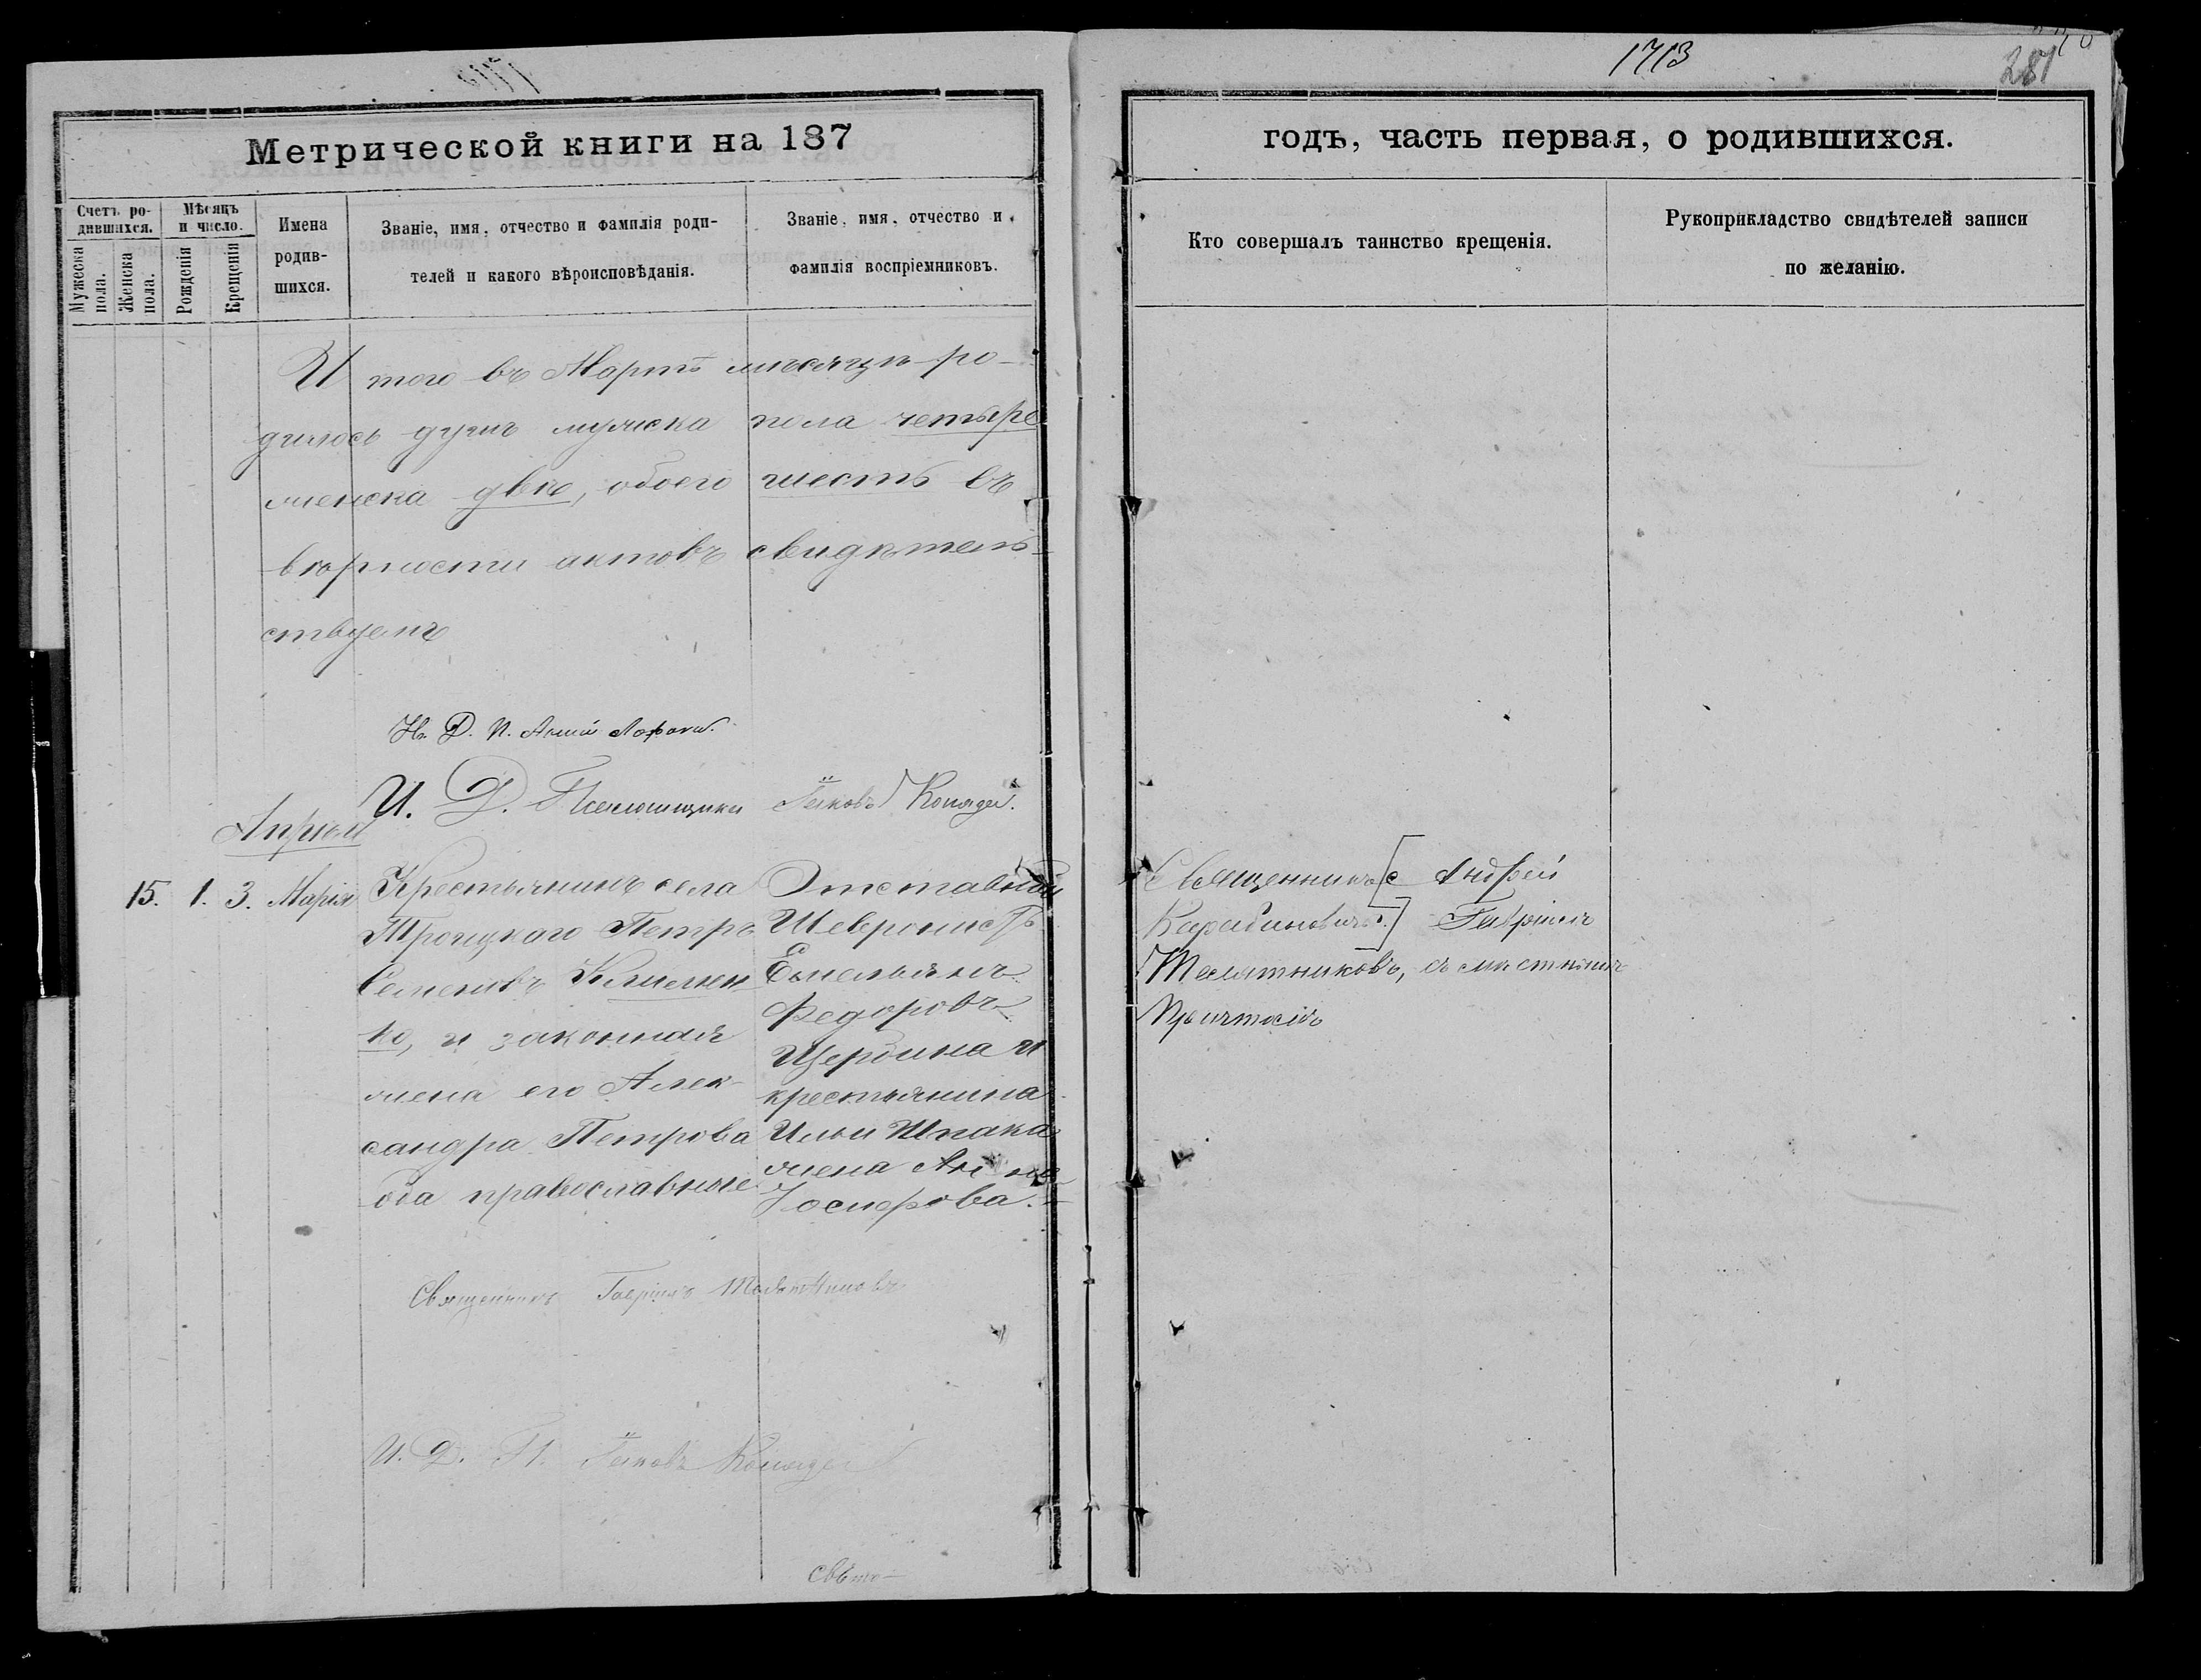 1713
287
Метрической книги на 187
годъ, часть первая, о родившихся.
Счетъ ро-
дившихся.
Мужеска
пола.
Женска
пола.
Мѣсяцъ
и число.
Рожденія
Крещенія
Имена
родив-
шихся.
Званіе, имя, отчество и фамилія роди-
телей и какого вѣроисповѣданія.
Званіе, имя, отчество и
фамилія воспріемниковъ.
Кто совершалъ таинство крещенія.
Рукоприкладство свидѣтелей записи
по желанію.
И того въ Мартѣ мѣсяцѣ ро-
дилось душъ мужска пола четыре
женска двѣ, обоего шесть въ
вѣрности актовъ свидѣтель-
ствуемъ
И. Д. П.
И. Д. Псаломщика Іяковъ Коляда
Апрѣль
15. 1. 3. Марія
Крестьянинъ села
Троицкаго Петръ
Семеновъ Клименъ
ко, и законная
жена его Алек-
сандра Петрова
оба православные
Отставной
Шевронистъ
Емельянъ
Федоровъ
Щербина и
крестьянина
Ильи Шпака
жена Анна
Іосифова.
Священникъ [с Андрей
] Гавріилъ
Телятниковъ, съ мѣстнымъ
Причтомъ
Священникъ Гавріилъ Телятниковъ
И. Д. П. Іяковъ Коляда